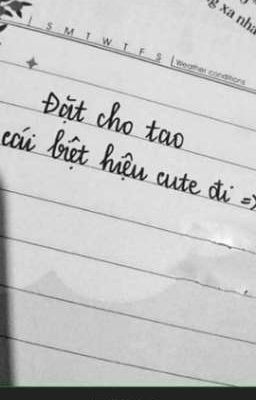 xa nha
S M T W T F S Weather conditions
Đặt cho tao
cái biệt hiệu cute đi =>